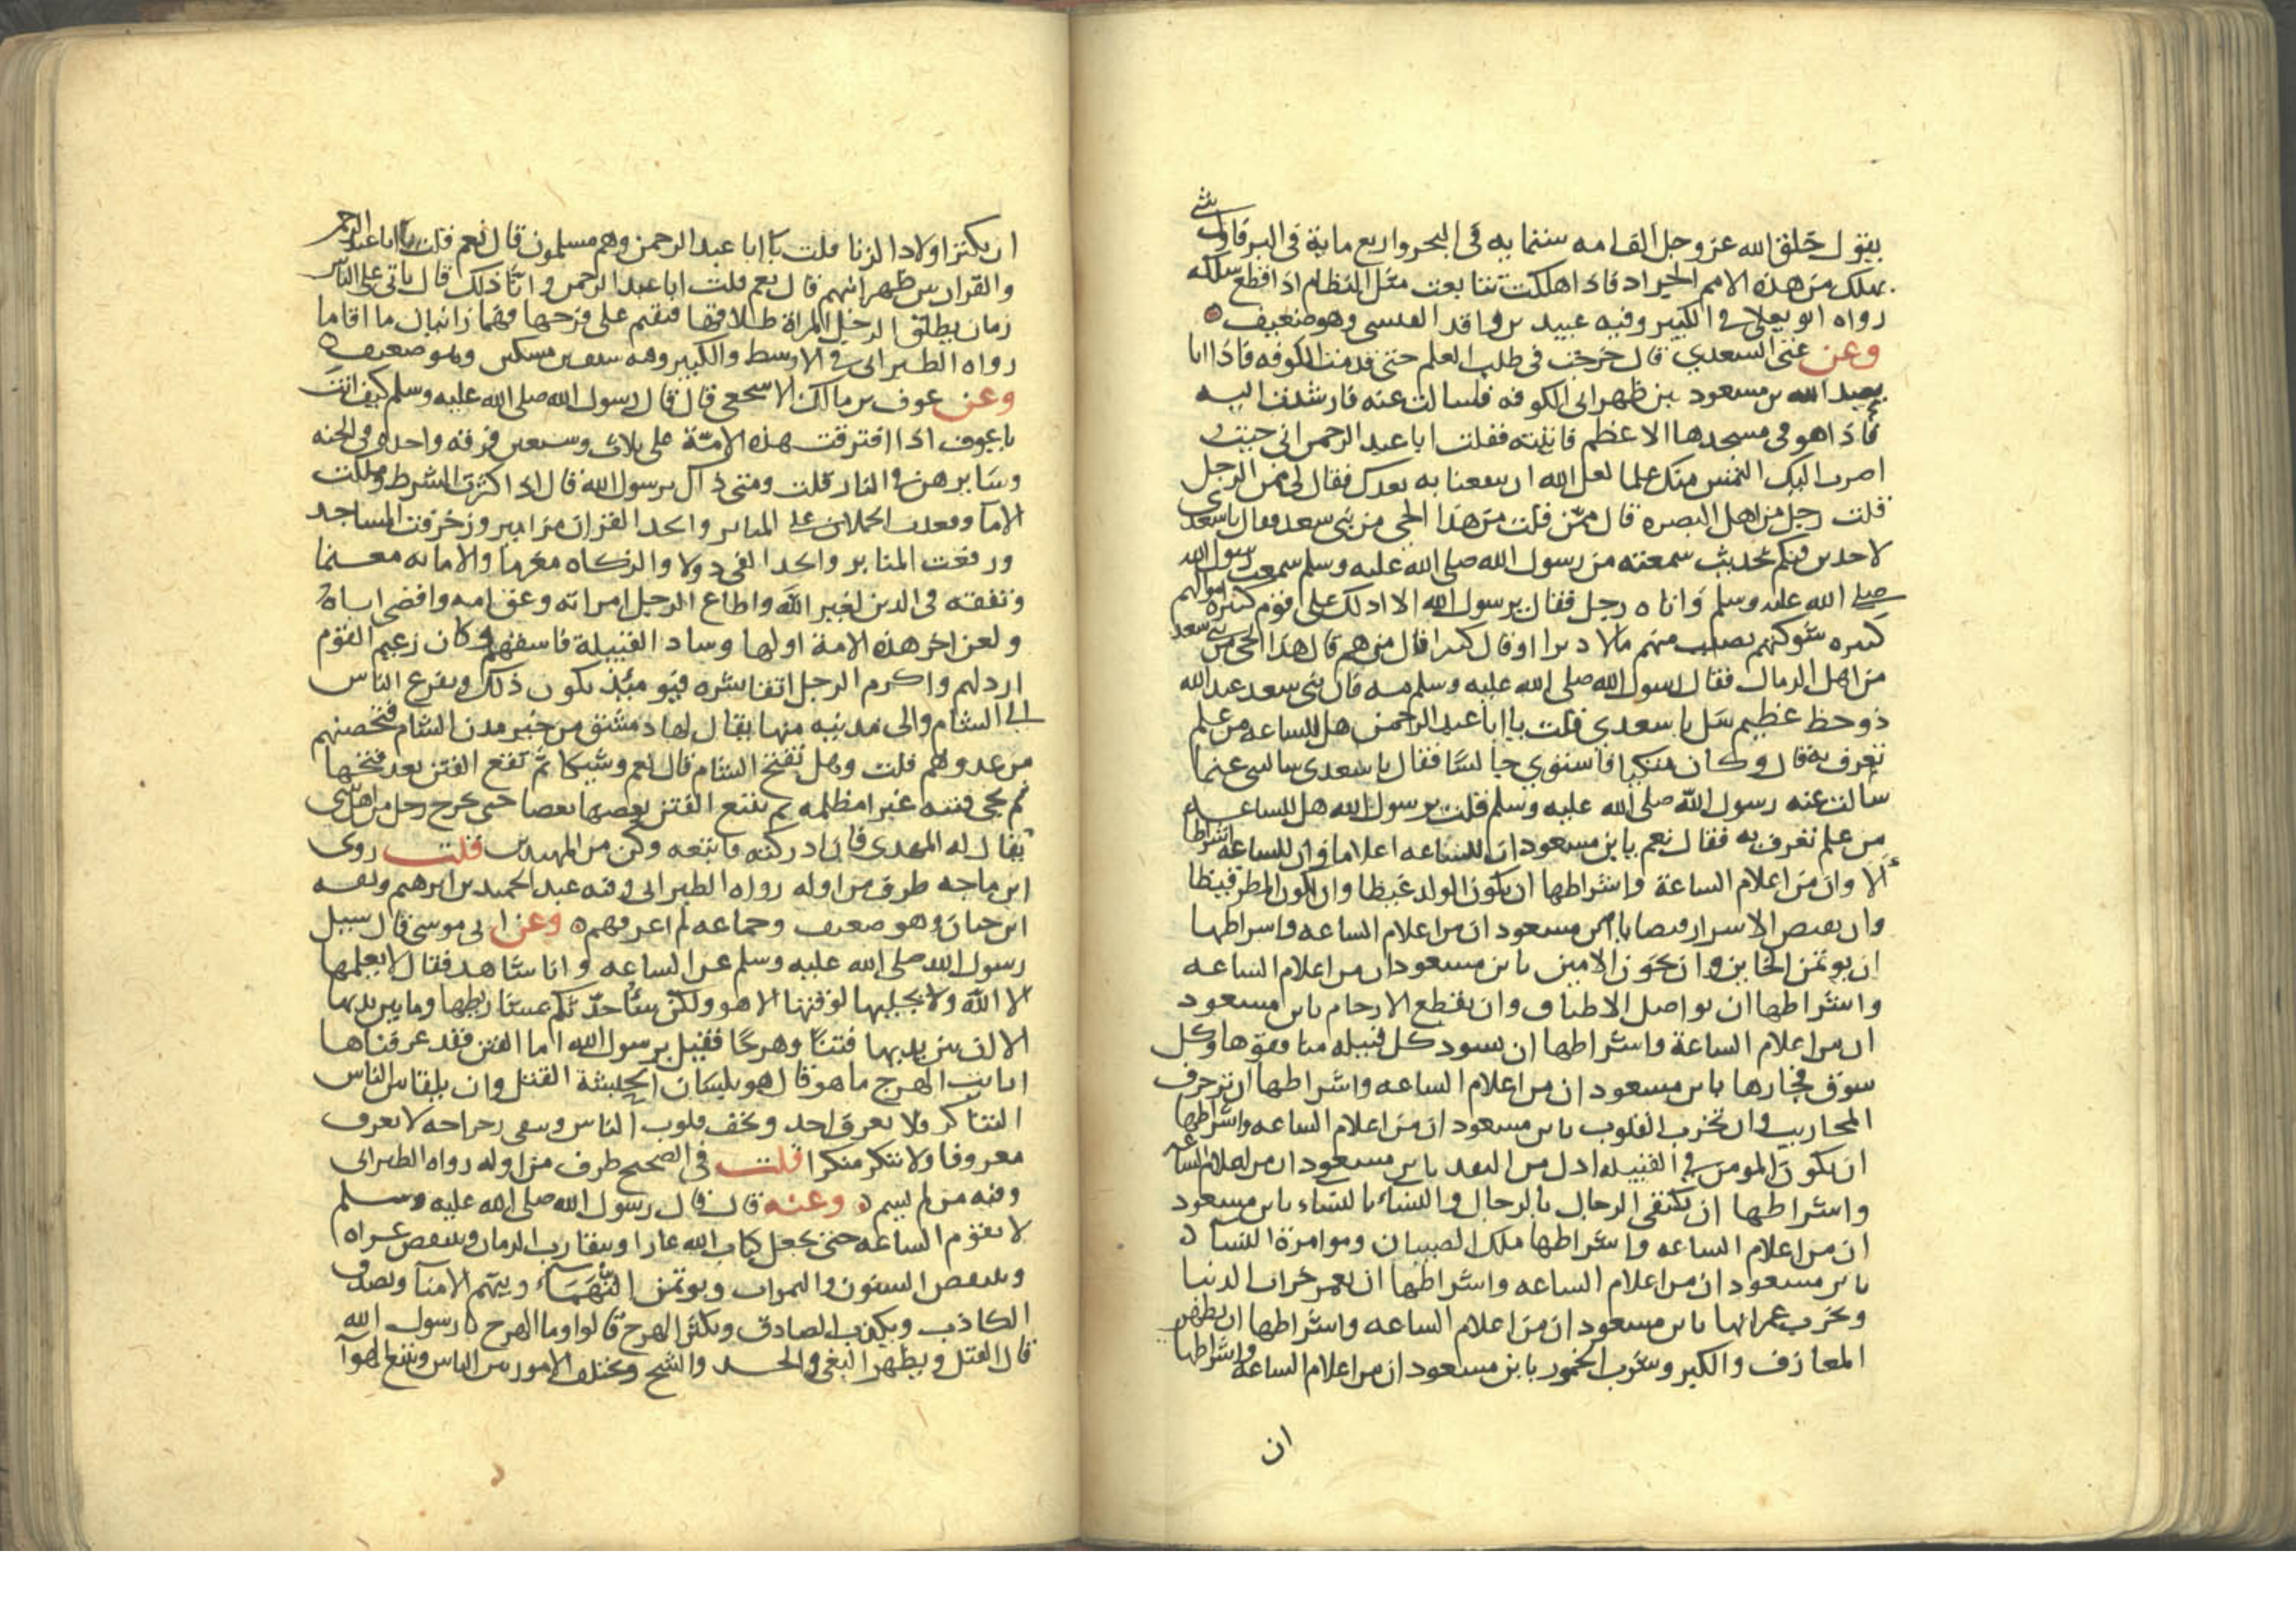 يقول خلق الله عز وجل الف امه ستمايه في البحر واربع ماية في البر فاول شي
يهلك من هذه الامم الجراد فاذا هلكت تتابعت مثل النظام اذا قطع سلكه
رواه ابو يعلى في الكبير وفيه عبيد بن واقد القيسي وهو ضعيف
وعن عتي السعدي قال خرجت في طلب العلم حتى قدمت الكوفه فاذا انا
بعبد الله بن مسعود بين ظهراني الكوفه فسالت عنه فارشدت اليه
فاذا هو في مسجدها الاعظم فاتيته فقلت ابا عبد الرحمن اني جيت
اضرب اليك التمس منك علما لعل الله ان ينفعنا به بعدك فقال لي ممن الرجل
قلت رجل من اهل البصره قال ممن قلت من هذا الحي من بني سعد فقال يا سعدي
لاحدثن فيكم بحديث سمعته من رسول الله صلى الله عليه وسلم سمعت رسول الله
صلى الله عليه وسلم واتاه رجل فقال يرسول الله الا ادلك على قوم كثيرة اموالهم
كثيره شوكتهم تصيب منهم مالا دبرا او قال كثيرا قال من هم قال هذا الحي من بني سعد
من اهل الرمال فقال رسول الله صلى الله عليه وسلم مه فان بني سعد عند الله
ذو حظ عظيم سل يا سعدي قلت يا ابا عبد الرحمن هل للساعه من علم
تعرف به قال وكان متكيا فاستوي جالسا فقال يا سعدي سالتني عما
سالت عنه رسول الله صلى الله عليه وسلم قلت يرسول الله هل للساعه
من علم تعرف به فقال نعم يا بن مسعود ان للساعه اعلاما وان للساعه اشراطا
الا وان من اعلام الساعة واشراطها ان يكون الولد غيظا وان يكون المطر قيظا
وان يفيض الاشرار فيضا يابن مسعود ان من اعلام الساعه واشراطها
ان يوتمن الخاين وان يخون الامين يابن مسعود ان من اعلام الساعه
واشراطها ان تواصل الاطباق وان تقطع الارحام يابن مسعود
ان من اعلام الساعة واشراطها ان يسود كل قبيله منافقوها وكل
سوق فجارها يابن مسعود ان من اعلام الساعه واشراطها ان تزخرف
المحاريب وان تخرب القلوب يابن مسعود ان من اعلام الساعه واشراطها
ان يكون المومن في القبيله اذل من النقد يابن مسعود ان من اعلام الساعه
واشراطها ان يكتفي الرجال بالرجال والنساء بالنساء يابن مسعود
ان من اعلام الساعه واشراطها ملك الصبيان وموامرة النساء
يابن مسعود ان من اعلام الساعه واشراطها ان يعمر خراب الدنيا
ويخرب عمرانها يابن مسعود ان من اعلام الساعه واشراطها ان تظهر
المعازف والكبر وشرب الخمور يابن مسعود ان من اعلام الساعه واشراطها
ان
ان يكثر اولاد الزنا قلت يا ابا عبد الرحمن وهم مسلمون قال نعم قلت يا ابا عبد الرحمن
والقران بين ظهرانيهم قال نعم قلت ابا عبد الرحمن وانا ذلك قال ياتي على الناس
زمان يطلق الرجل المراة طلاقها فتقيم على فرجها فهما زانيان ما اقاما
رواه الطبراني في الاوسط والكبير وفيه سيف بن مسكين وهو ضعيف
وعن عوف بن مالك الاشجعي قال قال رسول الله صلى الله عليه وسلم كيف انت
يا عوف اذا افترقت هذه الامة على ثلاث وسبعين فرقه واحدة في الجنه
وسايرهن في النار قلت ومتى ذاك يرسول الله قال اذا كثرت الشرط وملكت
الاما وقعدت الحملان على المنابر واتخذ القران مزامير وزخرفت المساجد
ورفعت المنابر واتخذ الفي دولا والزكاه مغرما والامانه مغنما
وتفقه في الدين لغير الله واطاع الرجل امراته وعق امه واقصى اباه
ولعن اخر هذه الامة اولها وساد القبيلة فاسقهم وكان زعيم القوم
ارذلهم واكرم الرجل اتقا شره فيومئذ يكون ذلك ويفزع الناس
الى الشام والى مدينه منها يقال لها دمشق من خير مدن الشام فتحصنهم
من عدوهم قلت وهل تفتح الشام قال نعم وشيكا ثم تقع الفتن بعد فتحها
ثم تجي فتنه غبرا مظلمه ثم تتبع الفتن بعضها بعضا حتى يخرج رجل من اهل بيتي
يقال له المهدي فان ادركته فاتبعه وكن من المهتدين قلت روى
ابن ماجه طرف من اوله رواه الطبراني وفيه عبد الحميد بن ابرهيم وثقه
ابن حبان وهو ضعيف وجماعه لم اعرفهم وعن ابي موسى قال سيل
رسول الله صلى الله عليه وسلم عن الساعه وانا شاهد فقال لا يعلمها
الا الله ولا يجليها لوقتها الا هو ولكن ساحدثكم بمشاريطها وما بين يديها
الا ان بين يديها فتنا وهرجا فقيل يرسول الله اما الفتن فقد عرفناها
ارايت الهرج ما هو قال هو بلسان الحبشة القتل وان يلقا بين الناس
التناكر فلا يعرف احد وتجف قلوب الناس وتبقى رجراجه لا تعرف
معروفا ولا تنكر منكرا قلت في الصحيح طرف من اوله رواه الطبراني
وفيه من لم يسم وعنه قال قال رسول الله صلى الله عليه وسلم
لا تقوم الساعه حتى يجعل كتاب الله عارا ويتقارب الزمان وتنتقص عراه
وتنتقص السنون والثمرات ويوتمن التهماء ويتهم الامنا ويصدق
الكاذب ويكذب الصادق ويكثر الهرج قالوا وما الهرج يا رسول الله
قال القتل ويظهر البغي والحسد والشح وتختلف الامور بين الناس ويتبع الهوا